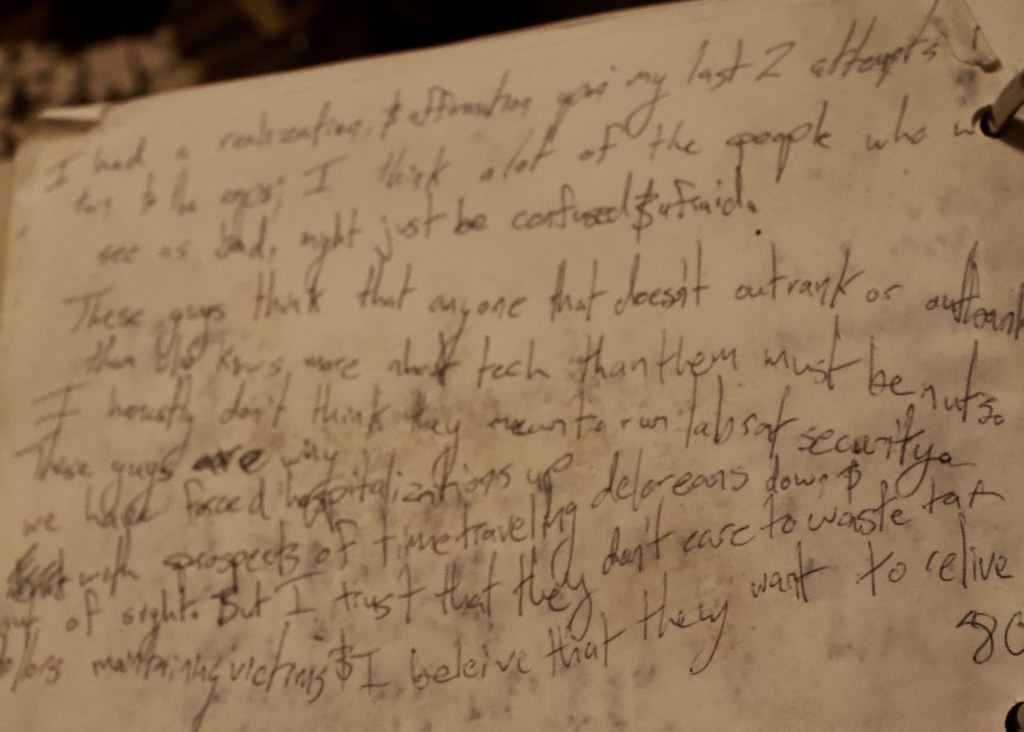 I had a realization, & affirmation upon my last 2 attempts
to the ; I think alot of the people who w
see as bad, might just be confused & afraid.
These guys think that anyone that doesn't outrank or outbank
them who knows more about tech than them must be nuts.
I honestly don't think they meant to run labs at security.
These guys are why
we have forced hospitalizations up
with prospects of time traveling deloreans down &
out of sight. But I trust that they don't care to waste tax
dollars maintaining victims & I beleive that they want to relive
80